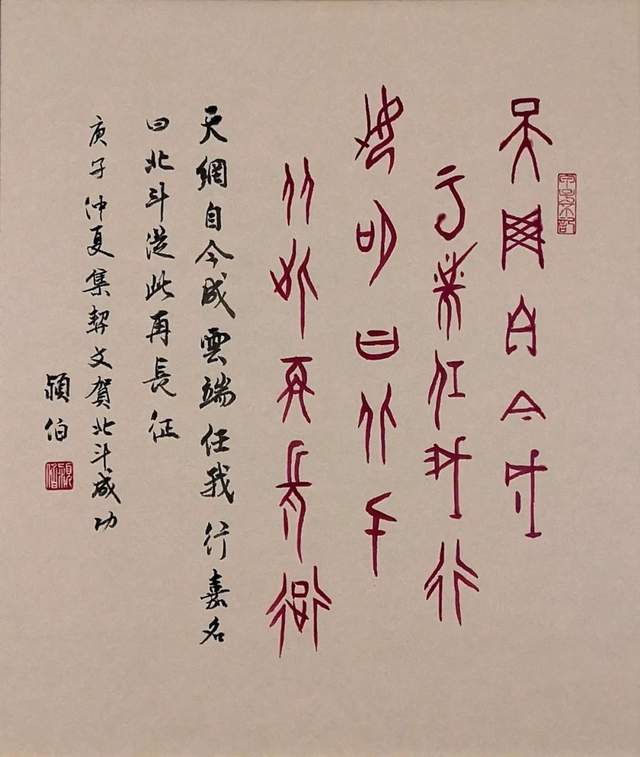 天網自今成
雲端任我行
嘉名曰北斗
從此再長征
天網自今成雲端任我行嘉名
曰北斗從此再長征
庚子仲夏集契文賀北斗成功
潁伯